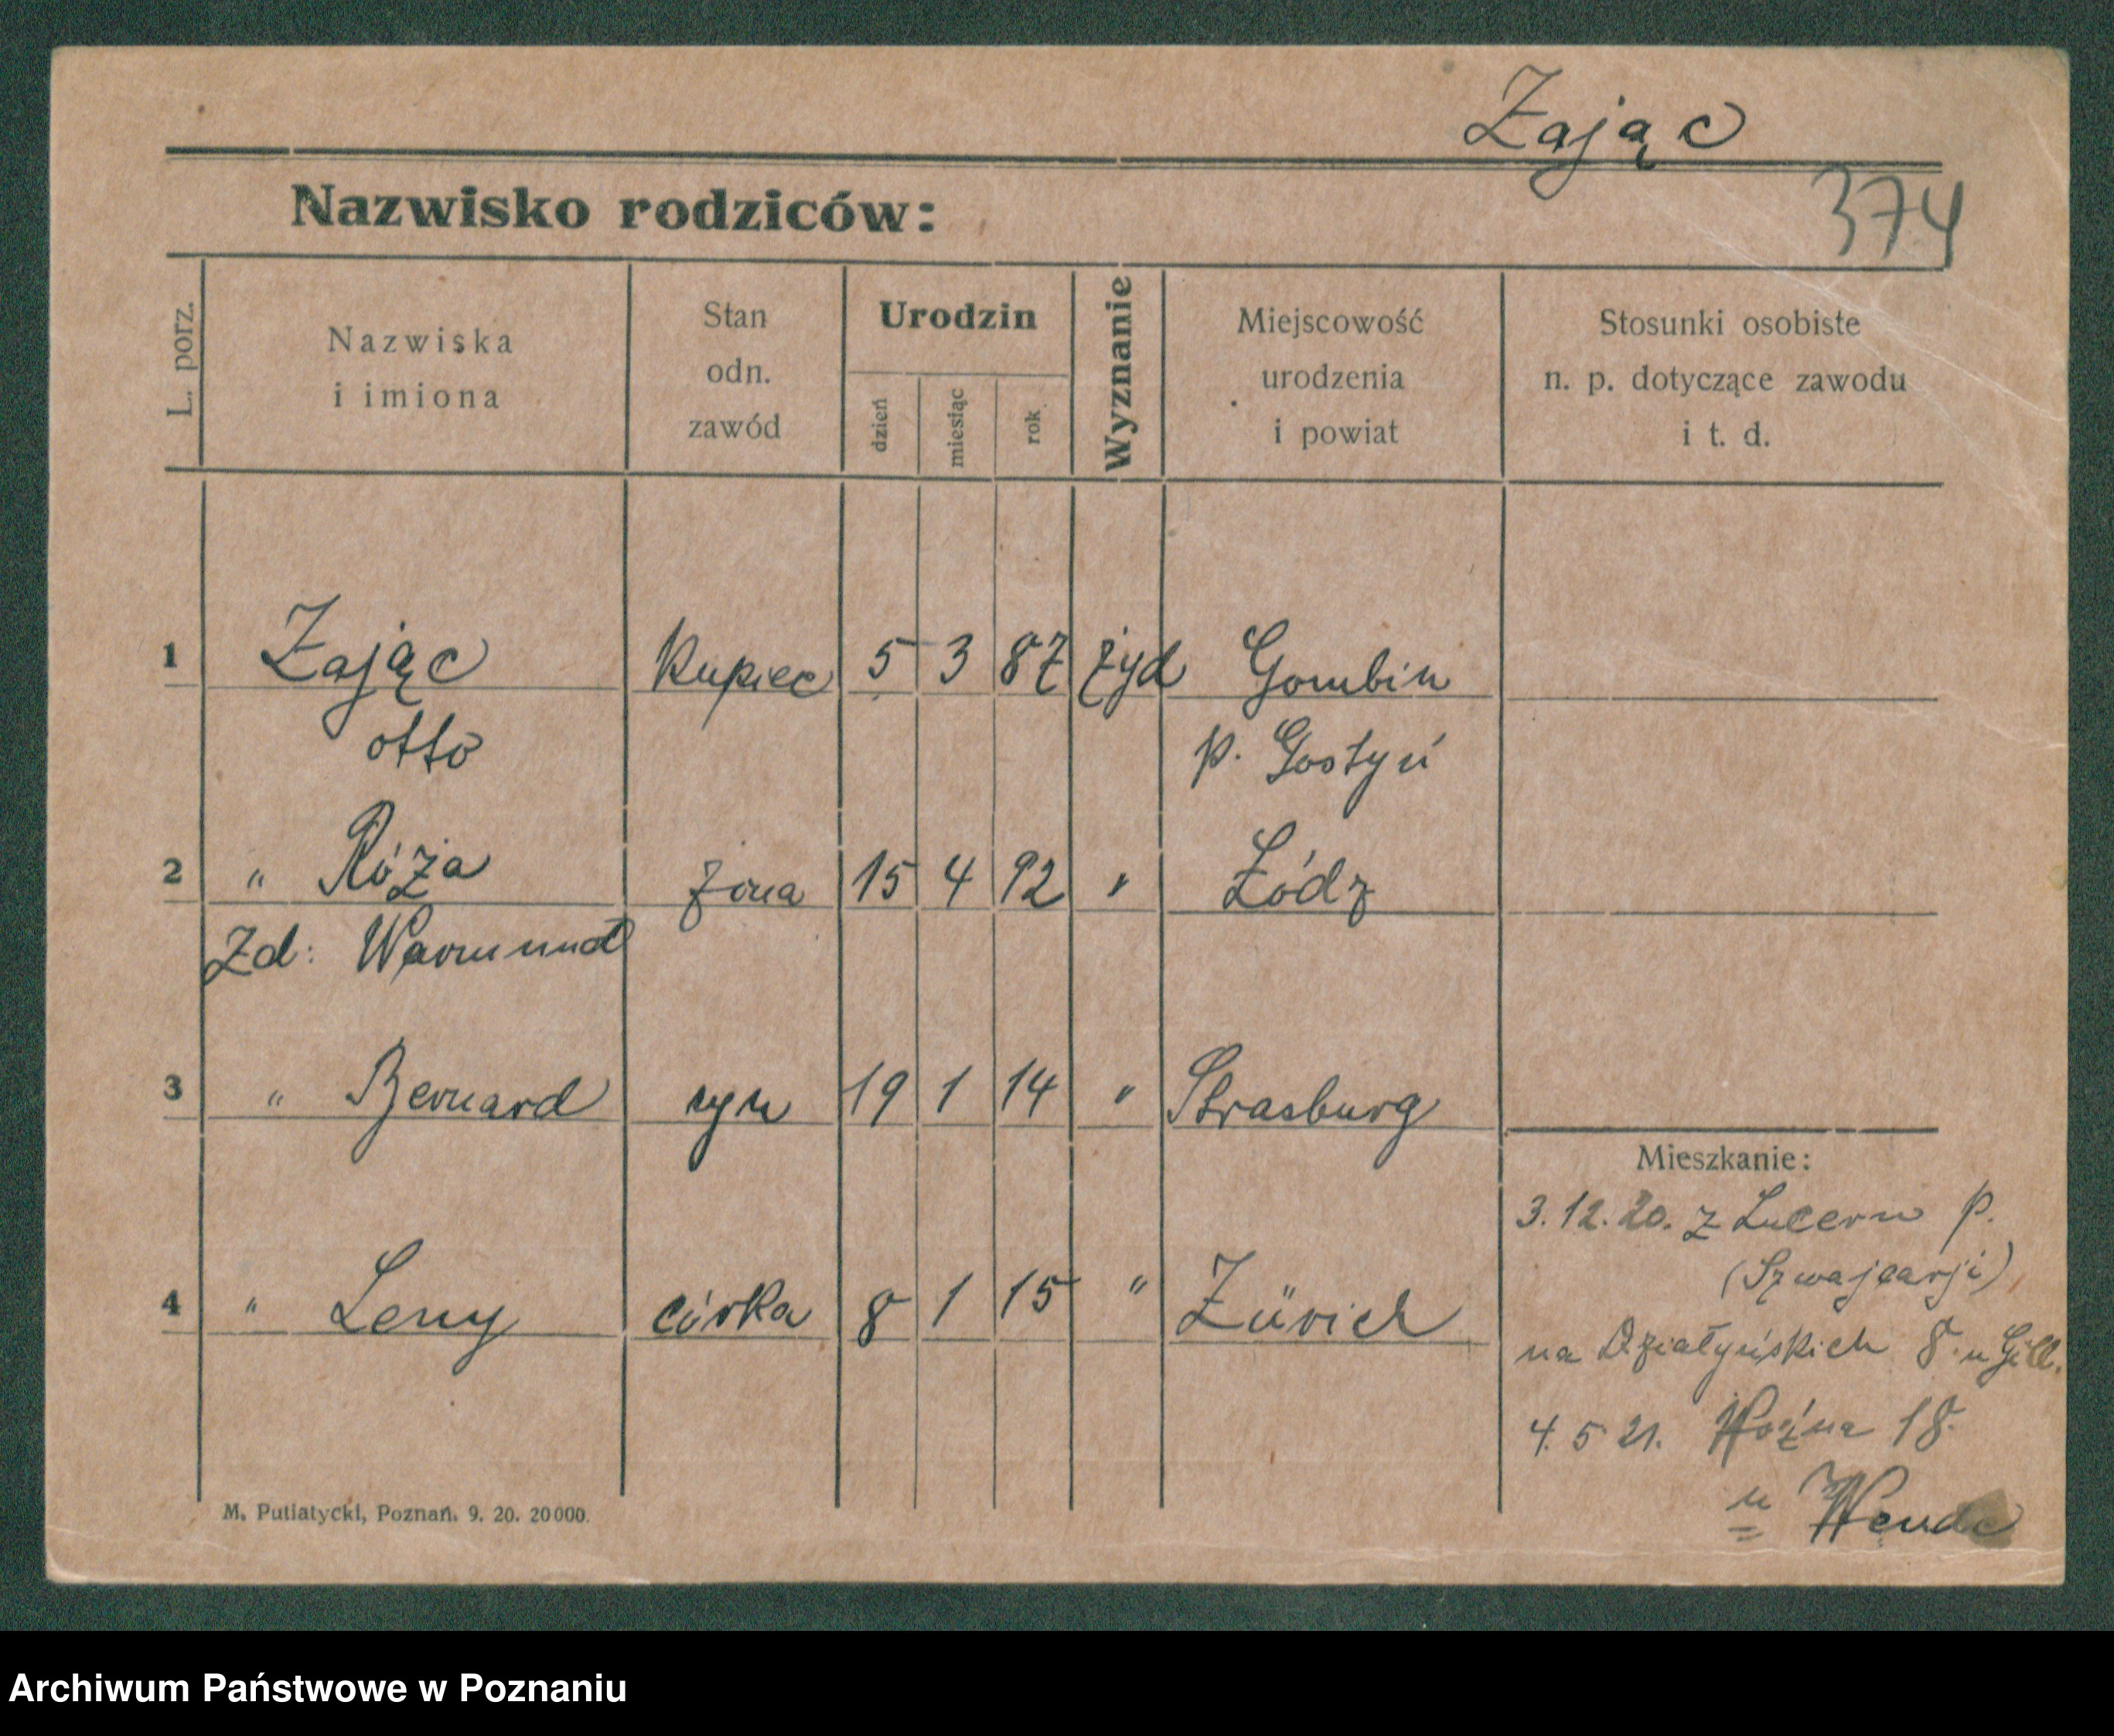 Zając
374
Nazwisko rodziców:
L. porz.
Nazwiska
i imiona
Stan
odn.
zawód
Urodzin
dzień
miesiąc
rok
Wyznanie
Miejscowość
urodzenia
i powiat
Stosunki osobiste
n. p. dotyczące zawodu
i t. d.
1 Zając Kupiec 5 3 87 żyd Gombin
otto p. Gostyń
2 " Róża żona 15 4 92 " Łódz
Zd: Warmund
3 " Bernard syn 19 1 14 " Strasburg
Mieszkanie:
3.12.20. z Lucern p.
(Szwajcarji)
4 " Leny córka 8 1 15 " Zürich
na Działyńskich 8. u Gill.
4. 5 21. Woźna 18.
u Wende
M. Putiatycki, Poznań. 9. 20. 20000.
Archiwum Państwowe w Poznaniu